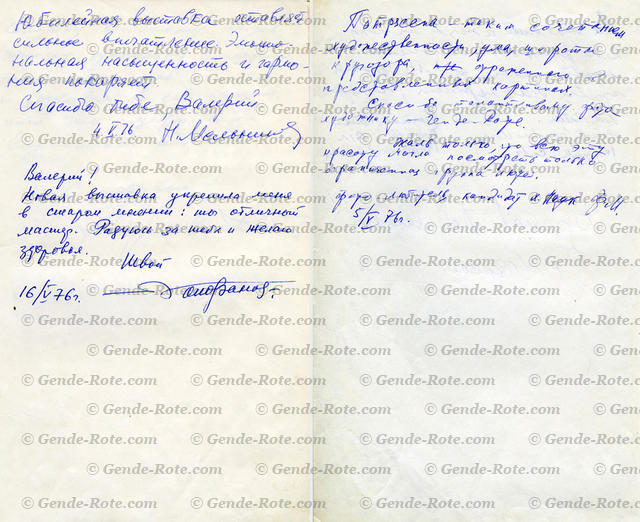 Юбилейная выставка оставляет
сильное впечатление. Эмоцио-
нальная насыщенность и гармо-
ния покоряет
Спасибо тебе, Валерий
4.V.76 Н. Мельников
Валерий!
Новая выставка укрепила меня
в старом мнении: ты отличный
мастер. Радуюсь за тебя и желаю
здоровья.
Твой
16/V 76г.
Потрясена таким сочетанием
художественности, ума, широты
кругозора, отраженного
представленных картинах.
Спасибо талантливому
художнику — Генде-Роте.
Жаль только, что всю эту
красоту могла посмотреть только
ограниченная группа людей.
кандидат
5/V.76г.
© Gende-Rote.com